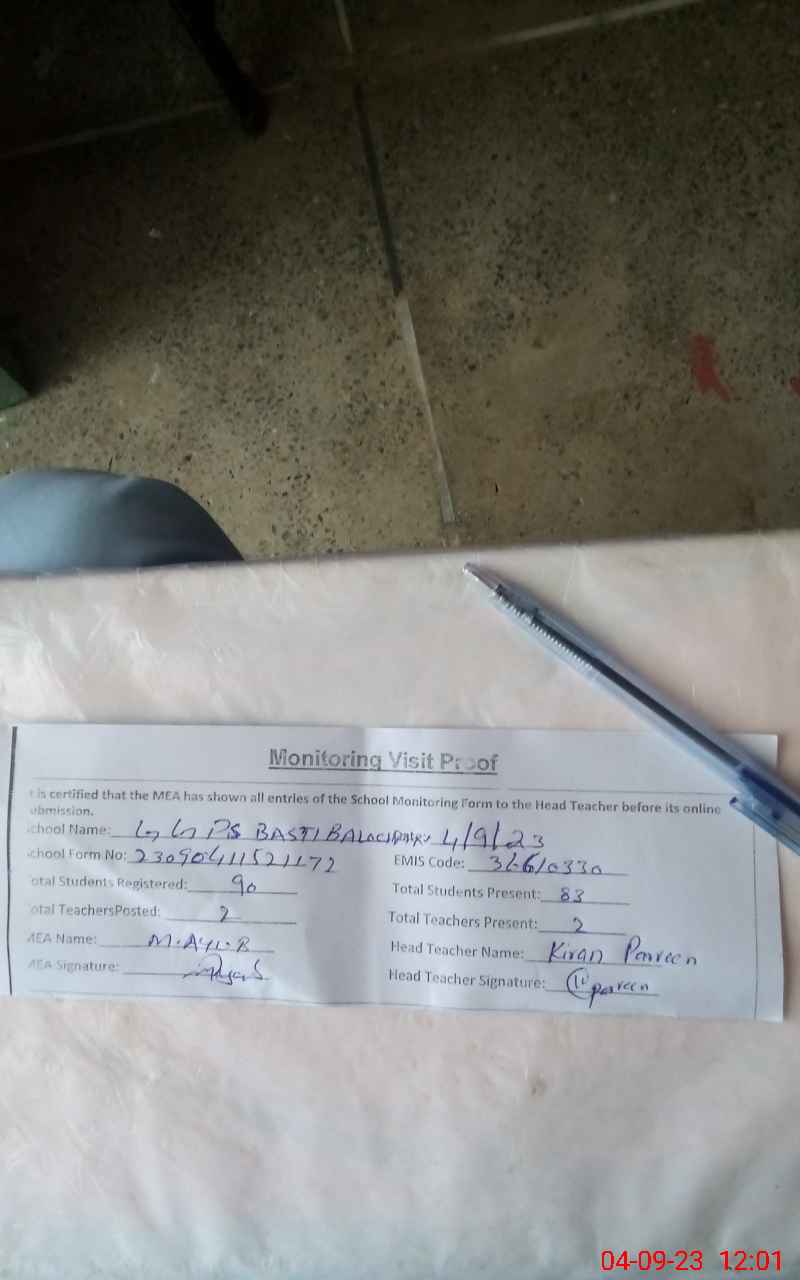 Monitoring Visit Proof
t is certified that the MEA has shown all entries of the School Monitoring Form to the Head Teacher before its online
ubmission.
chool Name: G G PS BASTI 4/9/23
chool Form No: EMIS Code:
otal Students Registered: 90 Total Students Present: 83
otal TeachersPosted: 2 Total Teachers Present: 2
MEA Name: Head Teacher Name: Kiran Parveen
MEA Signature: Head Teacher Signature: parveen
04-09-23 12:01